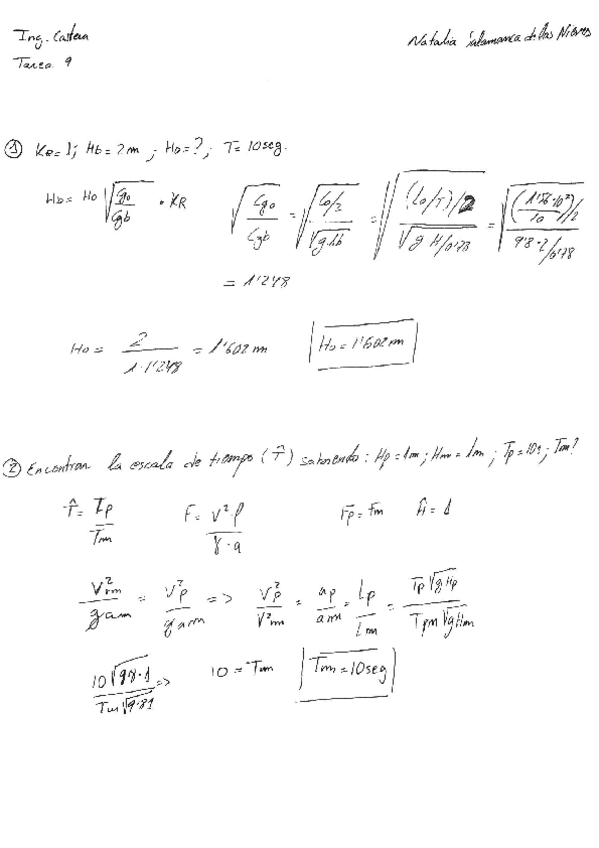 Ing. Costera
Natalia Salamanca de las Nieves
Tarea 9
① KR = 1; Hb = 2m ; Ho = ?; T = 10seg.
Hb = Ho √(Cgo/Cgb) · KR √(Cgo/Cgb) = √((Co/2)/√(g·hb)) = √(((Lo/T)/2)/√(g H/0'78)) = √(((1'56·10²)/10)/2 / 9'8·2/0'78)
= 1'248
Ho = 2/(1·1'248) = 1'602 m Ho = 1'602 m
② Encontrar la escala de tiempo (T̂) sabiendo: Hp = 1m; Hm = 1m; Tp = 10s; Tm?
T̂ = Tp/Tm F = V²·l/γ·a Fp = Fm Ĥ = 1
V²m/g am = V²p/g am => V²p/V²m = ap/am = Lp/Lm = Tp√gHp/Tpm√gHm
10√9'8·1/Tm√9·81 => 10 = Tm Tm = 10seg